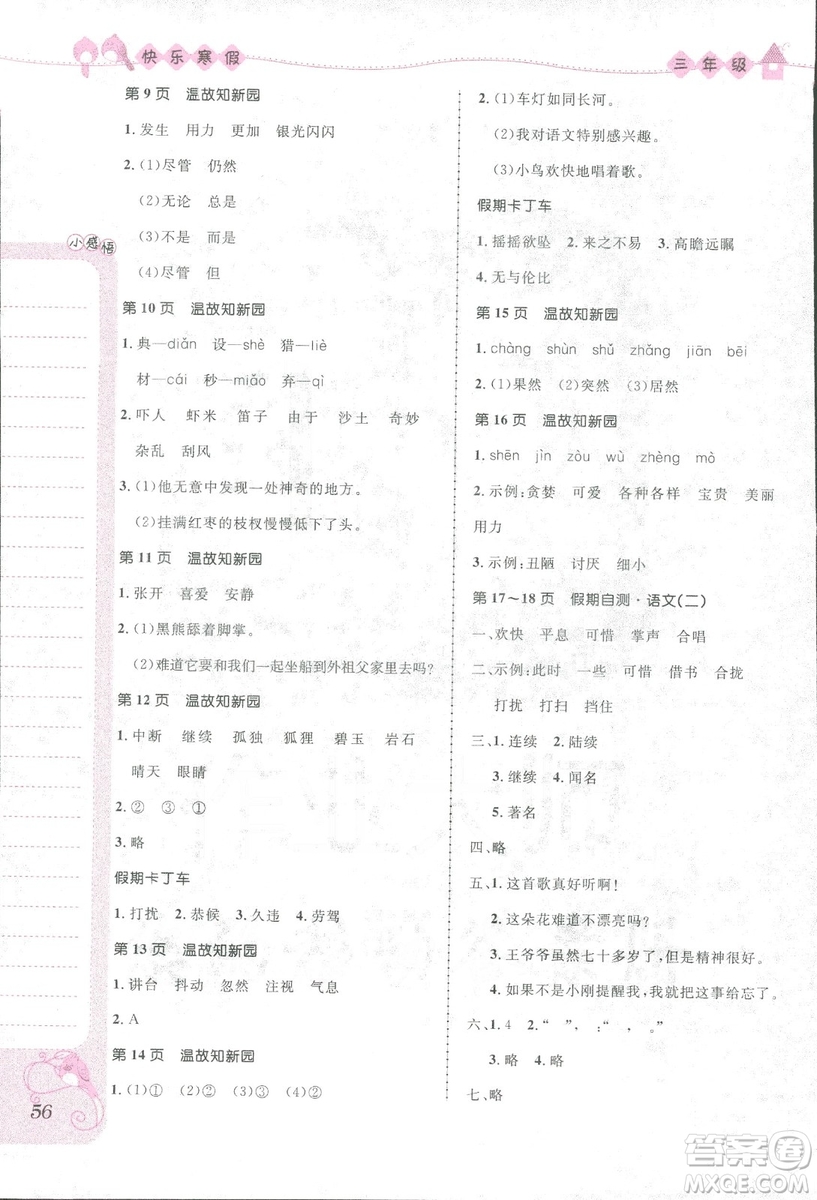 快乐寒假
三年级
第9页 温故知新园
1.发生 用力 更加 银光闪闪
2.(1)尽管 仍然
(2)无论 总是
(3)不是 而是
(4)尽管 但
第10页 温故知新园
1.典—diǎn 设—shè 猎—liè
材—cái 秒—miǎo 弃—qì
2.吓人 虾米 笛子 由于 沙土 奇妙
杂乱 刮风
3.(1)他无意中发现一处神奇的地方。
(2)挂满红枣的枝杈慢慢低下了头。
第11页 温故知新园
1.张开 喜爱 安静
2.(1)黑熊舔着脚掌。
(2)难道它要和我们一起坐船到外祖父家里去吗?
第12页 温故知新园
1.中断 继续 孤独 狐狸 碧玉 岩石
晴天 眼睛
2.② ③ ①
3.略
假期卡丁车
1.打扰 2.恭候 3.久违 4.劳驾
第13页 温故知新园
1.讲台 抖动 忽然 注视 气息
2.A
第14页 温故知新园
1.(1)① (2)② (3)② (4)②
小感悟
56
2.(1)车灯如同长河。
(2)我对语文特别感兴趣。
(3)小鸟欢快地唱着歌。
假期卡丁车
1.摇摇欲坠 2.来之不易 3.高瞻远瞩
4.无与伦比
第15页 温故知新园
1.chàng shùn shǔ zhǎng jiān bēi
2.(1)果然 (2)突然 (3)居然
第16页 温故知新园
1.shēn jìn zòu wù zhèng mò
2.示例:贪婪 可爱 各种各样 宝贵 美丽
用力
3.示例:丑陋 讨厌 细小
第17～18页 假期自测·语文(二)
一、欢快 平息 可惜 掌声 合唱
二、示例:此时 一些 可惜 借书 合拢
打扰 打扫 挡住
三、1.连续 2.陆续
3.继续 4.闻名
5.著名
四、略
五、1.这首歌真好听啊!
2.这朵花难道不漂亮吗?
3.王爷爷虽然七十多岁了,但是精神很好。
4.如果不是小刚提醒我,我就把这事给忘了。
六、1.4 2.“ ”, :“ , 。”
3.略 4.略
七、略
答案圈
MXQE.COM